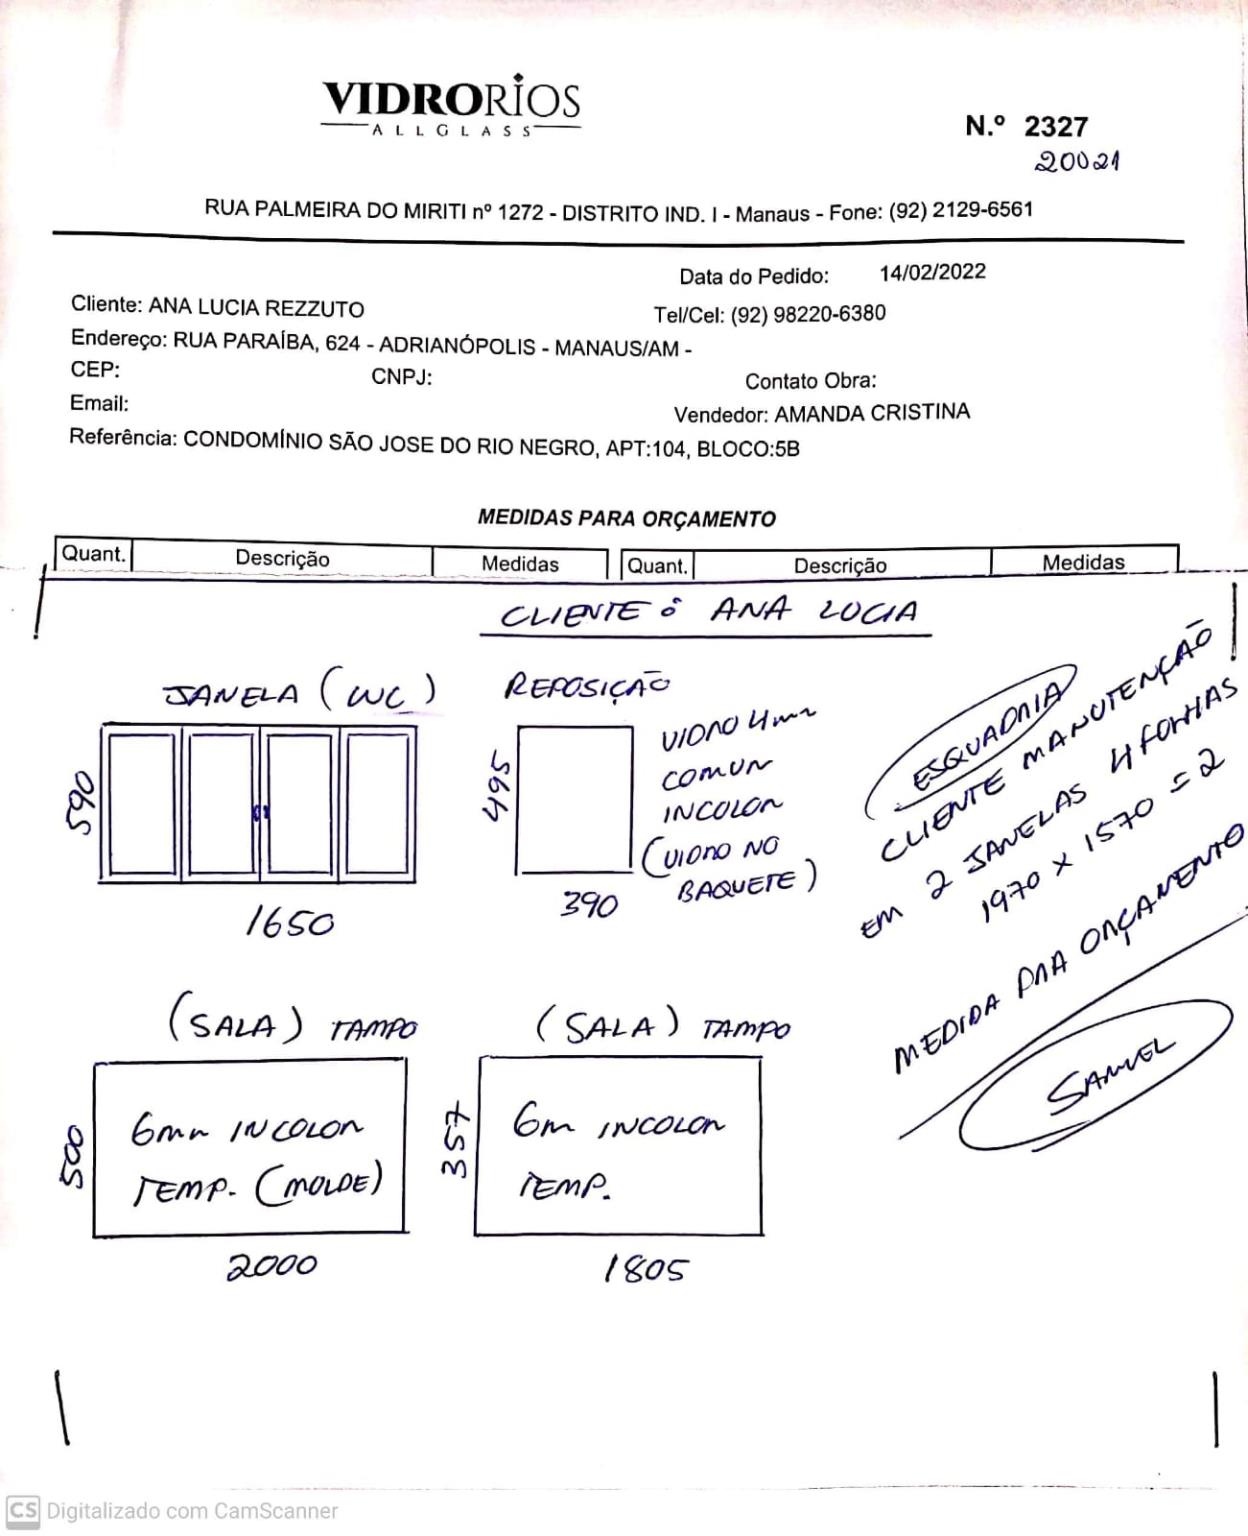 VIDRORIOS
ALLGLASS
N.º 2327
20021
RUA PALMEIRA DO MIRITI nº 1272 - DISTRITO IND. I - Manaus - Fone: (92) 2129-6561
Data do Pedido: 14/02/2022
Cliente: ANA LUCIA REZZUTO
Tel/Cel: (92) 98220-6380
Endereço: RUA PARAÍBA, 624 - ADRIANÓPOLIS - MANAUS/AM -
CEP:
CNPJ:
Contato Obra:
Email:
Vendedor: AMANDA CRISTINA
Referência: CONDOMÍNIO SÃO JOSE DO RIO NEGRO, APT:104, BLOCO:5B
MEDIDAS PARA ORÇAMENTO
Quant. Descrição Medidas Quant. Descrição Medidas
CLIENTE: ANA LUCIA
JANELA (WC)
590
1650
REPOSIÇÃO
495
390
VIDRO 4mm
COMUM
INCOLOR
(VIDRO NO
BAQUETE)
ESQUADRIA
CLIENTE MANUTENÇÃO
EM 2 JANELAS 4 FOLHAS
1970 X 1570 = 2
MEDIDA PARA ORÇAMENTO
SAMUEL
(SALA) TAMPO
500
6mm INCOLOR
TEMP. (MOLDE)
2000
(SALA) TAMPO
357
6m INCOLOR
TEMP.
1805
CS Digitalizado com CamScanner